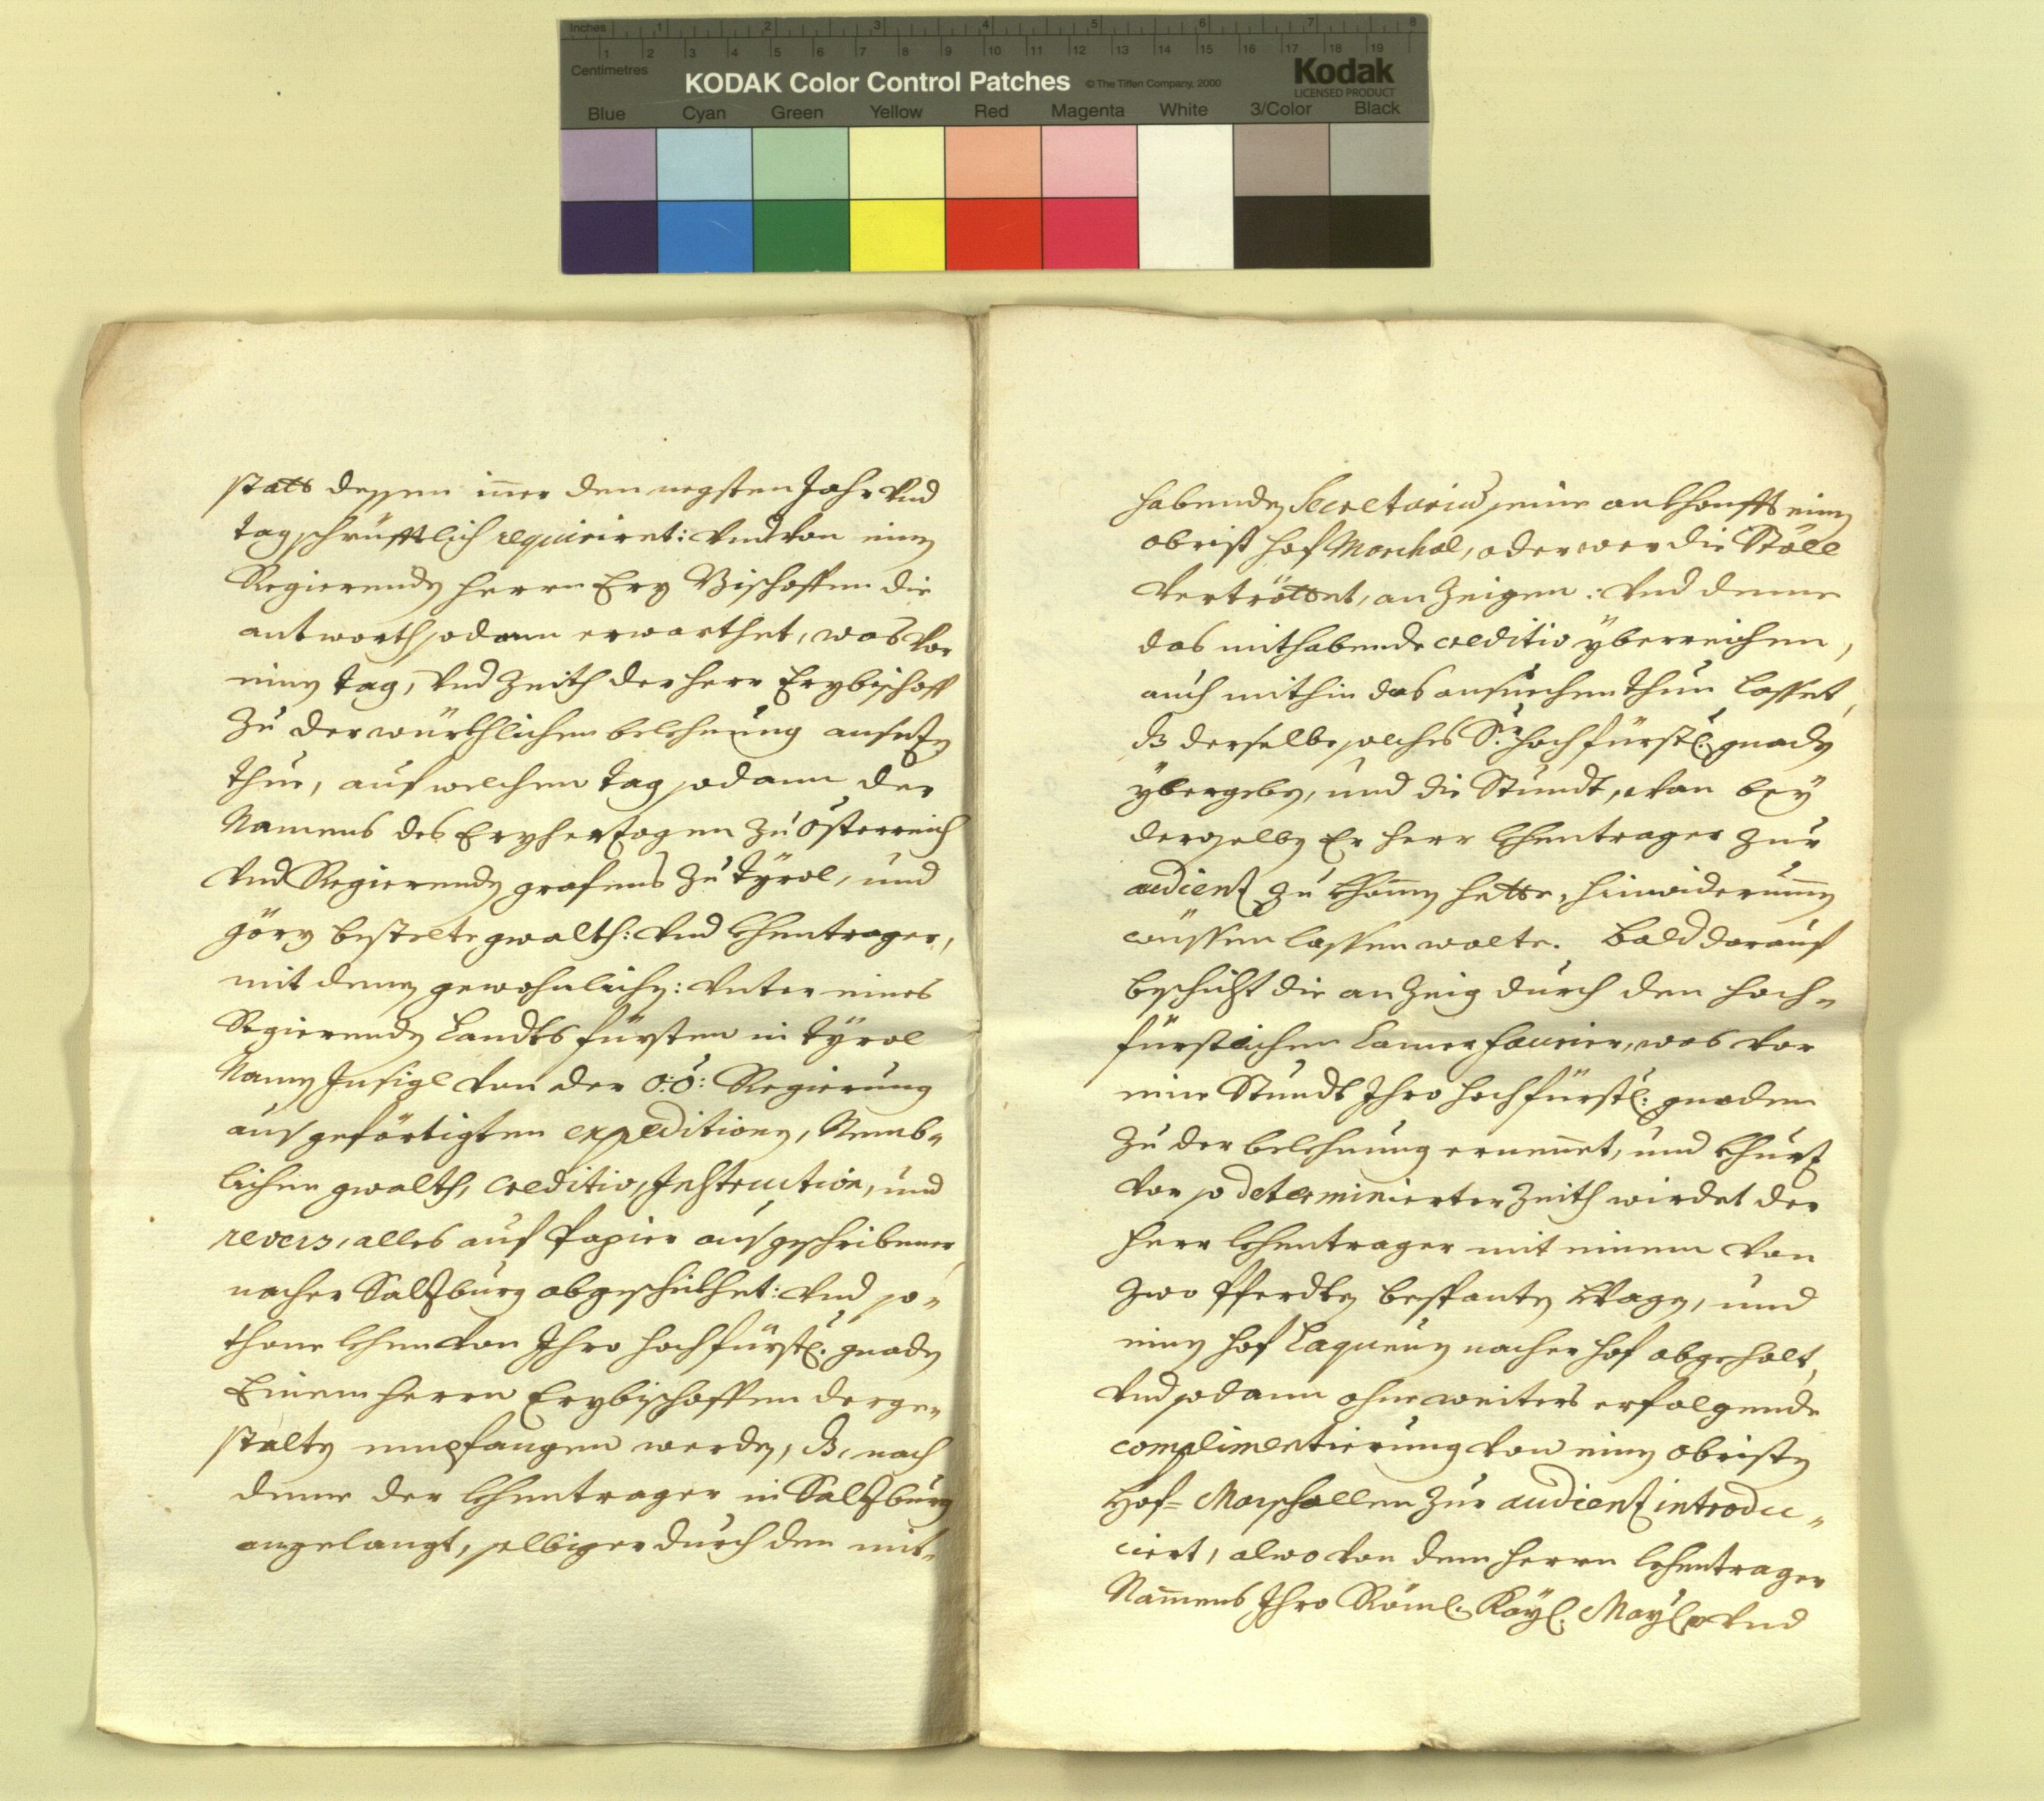 Inches 1 2 3 4 5 6 7 8
1 2 3 4 5 6 7 8 9 10 11 12 13 14 15 16 17 18 19
Centimetres
KODAK Color Control Patches © The Tiffen Company, 2000 Kodak
LICENSED PRODUCT
Blue Cyan Green Yellow Red Magenta White 3/Color Black
statts dessen iñer den negsten Jahr vnd
tag schrüfftlich requiriret: vnd von einen
Regierenden herrn Erz Bischoffen die
antworth sodann erwarthet, was vor
einen tag, vnd Zeith der herr Erzbischoff
Zu der würkhlichen belehnung ansezen
thue, auf welchen tag sodann der
Namens des Erzherzogen zu Össterreich
vnd Regierenden grafens zu Tÿrol, und
görz bestelte gwalth: vnd Lehentrager,
mit denen gewohnlichen: vnter eines
Regierenden Landts fürsten in Tÿrol
Namen Insigl von der O:Ö: Regierung
aus geförtigten expeditionen, Nemb-
lichen gwalth, creditiv, Instruction, und
revers, alles auf Papier aus geschribener
nacher Salzburg abgeschikhet: vnd so-
thane Lehen von Ihro hochfürstl: gnaden
Einem herrn Erzbischoffen derge-
stalten empfangen werden, dß, nach
deme der Lehentrager in Salzburg
angelangt, selbiger durch den mit-
habenden Secretarius seine ankhonfft einen
obrist hof Marchal, oder wer die Stöll
vertröttet, an Zeigen: vnd deme
das mithabende creditiv ÿberreichen,
auch mithin das ansuechen thun lasset,
dß derselbe solches Sr hochfürstl: gnaden
ÿbergeben, und die Stundt, wan beÿ
deroselben Er herr Lehentrager zur
audienz zu khomen hette, hinwiderumen
wüssen lassen wolte. Bald darauf
beschicht die an Zeig durch den hoch-
fürstlichen Camer fourier, was vor
eine Stundt Ihro hochfürstl: gnaden
zu der belehnung ernennet, und khurz
vor so determinierter Zeith wirdet der
herr Lehentrager mit einem von
zwo Pferdten bespanten Wagen, und
einen hof Laqueuen nacher hof abgeholt,
vnd sodann ohne weiters erfolgende
complimentierung von einen obristen
Hof= Marschallen zur audienz introdu-
ciert, alwo von dem herrn Lehentrager
Namens Ihro Röml. Kaÿl. Maÿl vnd